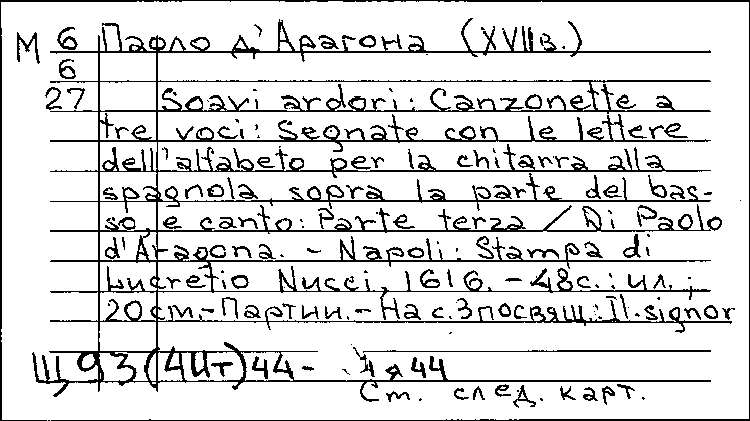 М 6 Паоло д'Арагона (XVIIв.)
6
27 Soavi ardori: Canzonette a
tre voci: Segnate con le lettere
dell'alfabeto per la chitarra alla
spagnola, sopra la parte del bas-
so, e canto: Parte terza / Di Paolo
d'Aragona. - Napoli: Stampa di
Lucretio Nucci, 1616. - 48с.: ил.;
20см.- Партии.- На с.3 посвящ.: Il signor
Щ93(4Ит)44- я44
См. след. карт.